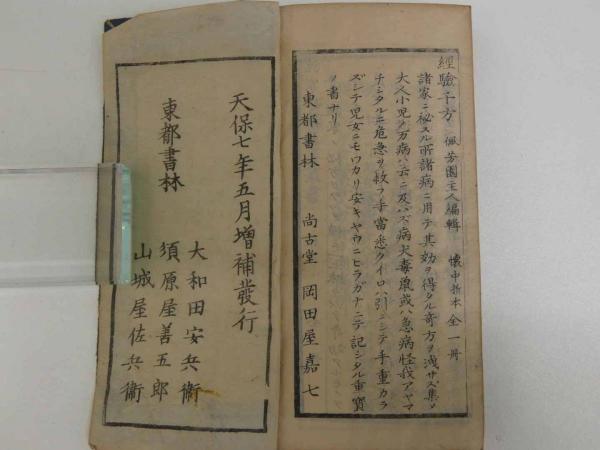 經驗千方 佩芳園主人編輯 懐中折本 全一冊
諸家ニ秘スル所諸病ニ用テ其効ヲ得タル奇方ヲ洩サズ集メ
大人小児ノ万病ハ云ニ及バズ病犬毒鼠或ハ急病怪我アヤマ
チシタルニ危急ヲ救フ手當悉クイロハ引ニシテ手重カラ
ズシテ児女ニモワカリ安キヤウニヒラガナニテ記シタル重寶
ノ書ナリ
東都書林 尚古堂 岡田屋嘉七
天保七年五月増補發行
東都書林
大和田安兵衞
須原屋善五郎
山城屋佐兵衞